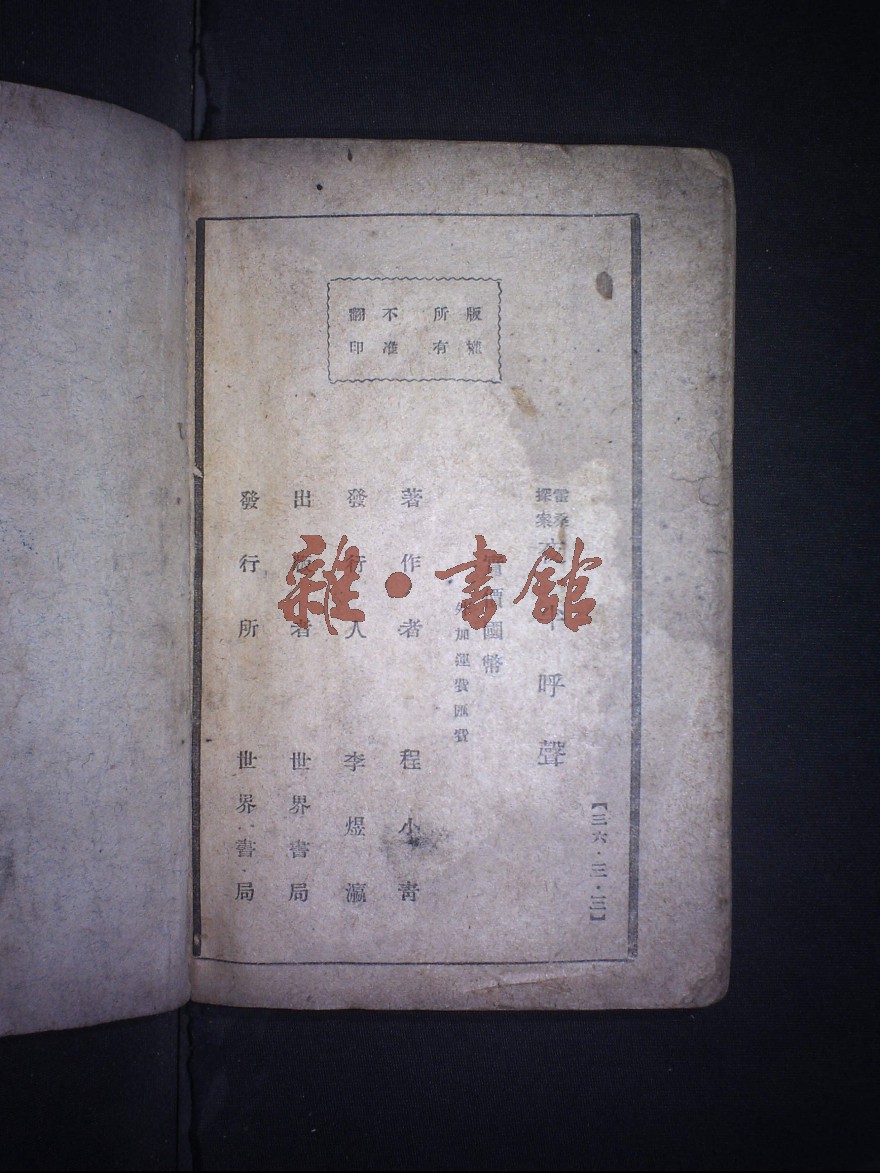 版權
所有
不准
翻印
【三六・三・三】
霍桑
探案
夜半呼聲
實價國幣
外加運費匯費
著作者 程小青
發行人 李煜瀛
出版者 世界書局
發行所 世界書局
雜・書館